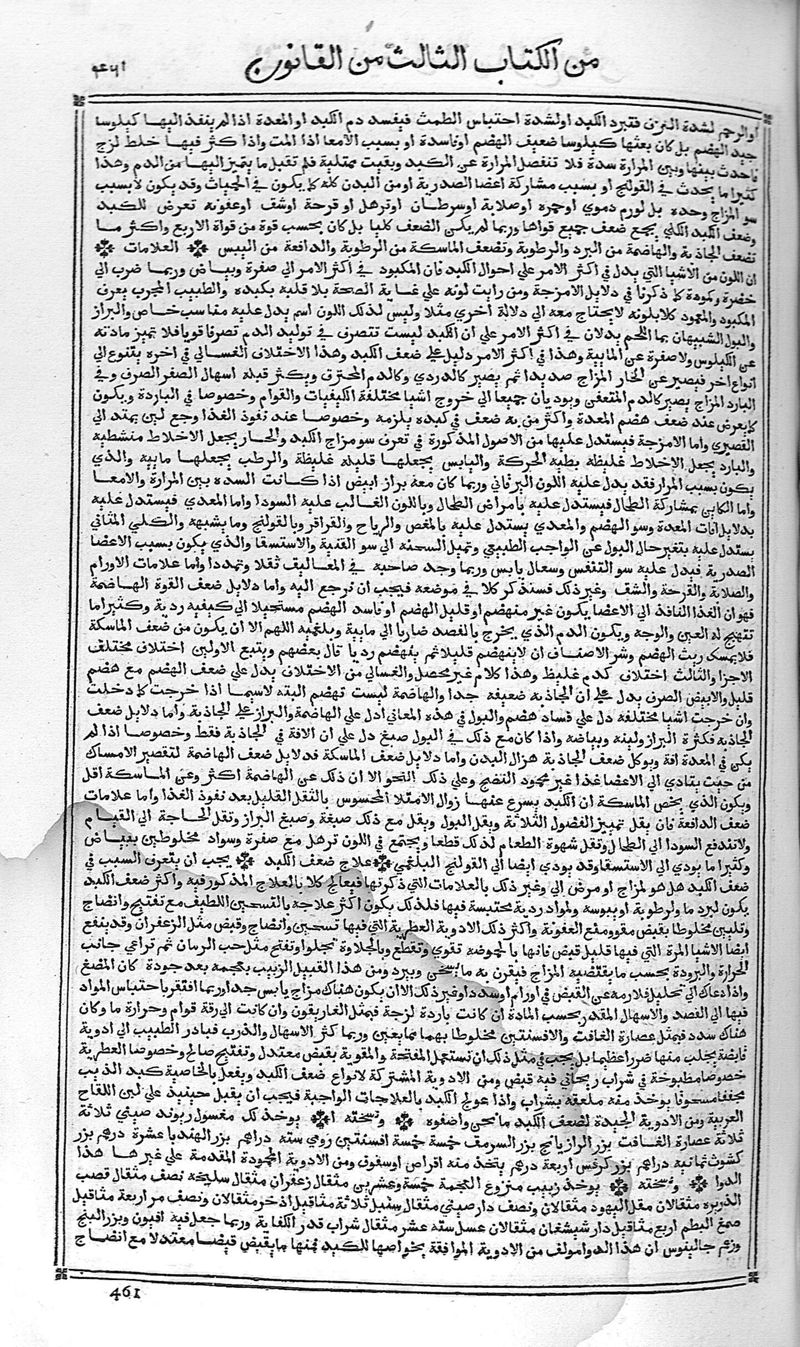 ٤٦١
من الكتاب الثالث من القانون
او الرحم لشدة النزف فيبرد الكبد او لشدة احتباس الطمث فيفسد دم الكبد او المعدة اذا لم ينفذ اليها كيلوسا
جيد الهضم بل كان بعثها كيلوسا ضعيف الهضم او فاسدة او بسبب الامعا اذا المت واذا كثر فيها خلط لزج
فاحدث بينها وبين المرارة سدة فلا تنفصل المرارة عن الكبد وبقيت ممتلية فلم تقبل ما يتميز اليها من الدم وهذا
كثيرا ما يحدث في القولنج او بسبب مشاركة اعضا الصدرية او من البدن كله كما يكون في الحميات وقد يكون لا بسبب
سو المزاج وحده بل لورم دموي او حمره او صلابة او سرطان او ترهل او قرحة او شق او عفونه تعرض للكبد
وضعف الكبد الكلي يجمع ضعف جميع قواها وربما لم يكن الضعف كليا بل كان بحسب قوة من قواة الاربع واكثر ما
تضعف الجاذبة والهاضمة من البرد والرطوبة وتضعف الماسكة من الرطوبة والدافعة من اليبس العلامات
ان اللون من الاشيا التي يدل في اكثر الامر علي احوال الكبد فان المكبود في اكثر الامر الي صفرة وبياض وربما ضرب الي
خضرة وكمودة كما ذكرنا في دلايل الامزجة ومن رايت لونه علي غاية الصحة بلا قلبه بكبده والطبيب المجرب يعرف
المكبود والممعود كلا بلونه لا يحتاج معه الي دلالة اخري مثلا وليس لذلك اللون اسم يدل عليه مناسب خاص والبراز
والبول الشبيهان بما اللحم يدلان في اكثر الامر علي ان الكبد ليست تتصرف في توليد الدم تصرفا قويا فلا تميز مادته
عن الكيلوس ولا صفرة عن المايية وهذا في اكثر الامر دليل علي ضعف الكبد وهذا الاختلاف الغسالي في اخره يتنوع الي
انواع اخر فيصير عن الحار المزاج صديدا ثم يصير كالدردي وكالدم المحترق ويكثر قبله اسهال الصفر الصرف وفي
البارد المزاج يصير كالدم المتعفن ويوديان جميعا الي خروج اشيا مختلفة الكيفيات والقوام وخصوصا في الباردة ويكون
كما يعرض عند ضعف هضم المعدة واكثر من به ضعف في كبده يلزمه وخصوصا عند نفوذ الغذا وجع لين يمتد الي
القصيري واما الامزجة فيستدل عليها من الاصول المذكورة في تعرف سو مزاج الكبد والحار يجعل الاخلاط منشطية
والبارد يجعل الاخلاط غليظة بطية الحركة واليابس يجعلها قليلة غليظة والرطب يجعلها مايية والذي
يكون بسبب المرار فقد يدل عليه اللون اليرقاني وربما كان معه براز ابيض اذا كانت السده بين المرارة والامعا
واما الكاين بمشاركة الطحال فيستدل عليه بامراض الطحال وباللون الغالب عليه السودا واما المعدي فيستدل عليه
بدلايل افات المعدة وسو الهضم والمعدي يستدل عليه بالمغص والرياح والقراقر وبالقولنج وما يشبهه والكلي المثاني
يستدل عليه بتغير حال البول عن الواجب الطبيعي وتميل السحنه الي سو القنية والاستسقا والذي يكون بسبب الاعضا
الصدرية فيدل عليه سو التنفس وسعال يابس وربما وجد صاحبه في المعاليق ثقلا وتمددا واما علامات الاورام
والصلابة والقرحة والشق وغير ذلك فسنذكر كلا في موضعه فيجب ان ترجع اليه واما دلايل ضعف القوة الهاضمة
فهو ان الغذا النافذ الي الاعضا يكون غير منهضم او قليل الهضم او فاسد الهضم مستحيلا الي كيفيه ردية وكثيرا ما
تتهيج له العين والوجه ويكون الدم الذي يخرج بالفصد ضاربا الي مايية وبلغميه اللهم الا ان يكون من ضعف الماسكة
فلا يمسك ريث الهضم وشر الاصناف ان لا ينهضم قليلا ثم ينهضم رديا قال بعضهم ويتبع الاولين اختلاف مختلف
الاجزا والثالث اختلاف كدم غليظ وهذا كلام غير محصل والغسالي من الاختلاف يدل علي ضعف الهضم مع هضم
قليل والابيض الصرف يدل علي ان الجاذبة ضعيفه جدا والهاضمة ليست تهضم البته لا سيما اذا خرجت كما دخلت
وان خرجت اشيا مختلفه دل علي فساد هضم والبول في هذه المعاني ادل علي الهاضمة والبراز علي الجاذبة واما دلايل ضعف
الجاذبه فكثرة البراز ولينه وبياضه واذا كان مع ذلك في البول صبغ دل علي ان الافة في الجاذبة فقط وخصوصا اذا لم
يكن في المعدة افة ويوكل ضعف الجاذبة هزال البدن واما دلايل ضعف الماسكة فدلايل ضعف الهاضمة لتقصير الامساك
من حيث يتادي الي الاعضا غذا غير محمود النضج وعلي ذلك النحو الا ان ذلك عن الهاضمة اكثر وعن الماسكة اقل
ويكون الذي يخص الماسكة ان الكبد يسرع عنها زوال الامتلا المحسوس بالثقل القليل بعد نفوذ الغذا واما علامات
ضعف الدافعة فان يقل تمييز الفضول الثلاثة ويقل البول ويقل مع ذلك صبغة وصبغ البراز وتقل الحاجة الي القيام
ولا تندفع السودا الي الطحال وتقل شهوة الطعام لذلك قطعا ويجتمع في اللون ترهل مع صفرة وسواد مخلوطين ببياض
وكثيرا ما يودي الي الاستسقا وقد يودي ايضا الي القولنج البلغمي علاج ضعف الكبد يجب ان يتعرف السبب في
ضعف الكبد هل هو لمزاج او مرض الي وغير ذلك بالعلامات التي ذكرتها فيعالج كلا بالعلاج المذكور فيه واكثر ضعف الكبد
يكون لبرد ما ولرطوبة او يبوسه ولمواد ردية محتبسة فيها فلذلك يكون اكثر علاجه بالتسخين اللطيف مع تفتيح وانضاج
وتليين مخلوطا بقبض مقو ومنع العفونة واكثر ذلك الادوية العطرية التي فيها تسخين وانضاج وقبض مثل الزعفران وقد ينفع
ايضا الاشيا المرة التي فيها قليل قبض فانها بالحموضه تقوي وتقطع وبالحلاوة تجلوا وتفتح مثل حب الرمان ثم تراعي جانب
الحرارة والبرودة بحسب ما يقتضيه المزاج فيقرن به ما يسخن ويبرد ومن هذا القبيل الزبيب بعجمه بعد جودة كان المضغ
واذا دعاك الي تحليل فلا رمه عن القبض في اورام او سدد او غير ذلك الا ان يكون هناك مزاج يابس جدا وربما افتقر باحتباس المواد
فيها الي الفصد والاسهال المقدر بحسب المادة ان كانت باردة لزجة فبمثل الغاريقون وان كانت الي رقة قوام وحرارة ما وكان
هناك سدد فبمثل عصارة الغافت والافسنتين مخلوطا بهما مما يعين وربما كثر الاسهال والذرب فبادر الطبيب الي ادوية
قابضة يجلب منها ضررا عظيما بل يجب في مثل ذلك ان تستعمل المفتحة والمقوية بقبض معتدل وتفتيح صالح وخصوصا العطرية
خصوصا مطبوخة في شراب ريحاني فيه قبض ومن الادوية المشتركة لانواع ضعف الكبد ويفعل بالخاصية كبد الذيب
مجففا مسحوقا يوخذ منه ملعقه بشراب واذا عولج الكبد بالعلاجات الواجبة فيجب ان يقبل حينيذ علي لبن اللقاح
العربية ومن الادوية الجيدة لضعف الكبد ما نحن واصفوه ونسخته يوخذ لك مغسول ريوند صيني ثلاثة
ثلاثة عصارة الغافت بزر الرازيانج بزر السرمق خمسة خمسة افسنتين رومي سته دراهم بزر الهندبا عشرة درهم بزر
كشوث ثمانية دراهم بزر كرفس اربعة درهم يتخذ منه اقراص او سفوف ومن الادوية المحمودة المقدمة علي غيرها هذا
الدوا ونسخته يوخذ زبيب منزوع العجمة خمسة وعشرين مثقال زعفران مثقال سليخه نصف مثقال قصب
الذريره مثقالان مقل اليهود مثقالان ونصف دار صيني مثقال سنبل ثلاثة مثاقيل اذخر مثقالان ونصف مر اربعة مثاقيل
صمغ البطم اربع مثاقيل دار شيشغان مثقالان عسل سته عشر مثقال شراب قدر الكفاية وربما جعل فيه افيون وبزر البنج
وزعم جالينوس ان هذا الدوا مولف من الادوية الموافقة بخواصها للكبد فمنها ما يقبض قبضا معتدلا مع انضاج
461